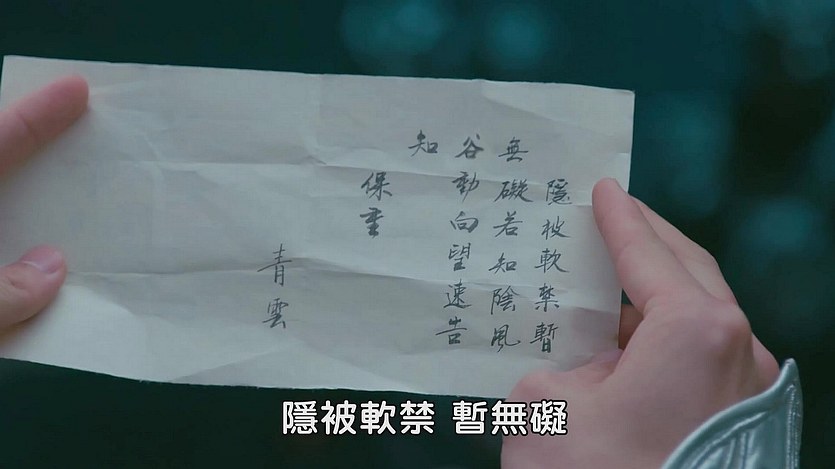 隱被軟禁暫
無礙若知陰風
谷動向望速告
知
保重
青雲
隱被軟禁 暫無礙